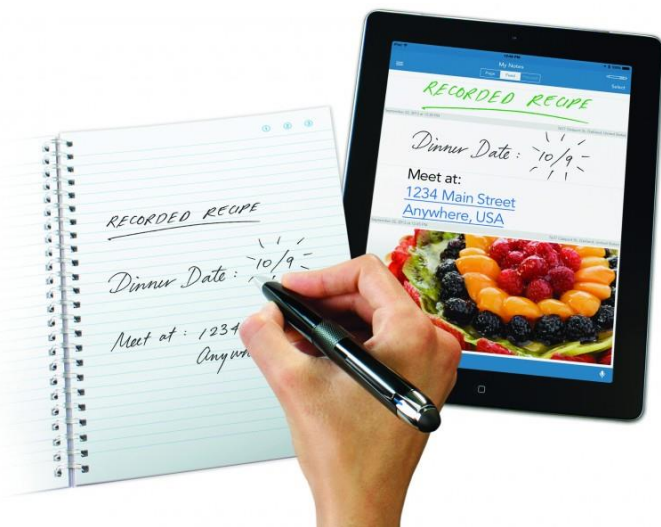 RECORDED RECIPE
Dinner Date: 10/9
Meet at: 1234
My Notes
Page Feed
Select
RECORDED RECIPE
Dinner Date: 10/9
Meet at:
1234 Main Street
Anywhere, USA